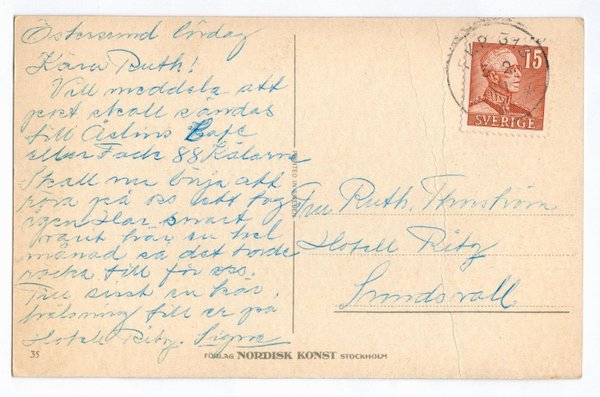 Östersund lördag
Kära Ruth!
Vill meddela att
post skall sändas
till Åslins Café
eller Fack 88 Kälarne
Skall nu börja att
röra på oss ett tag
igen Har snart
varit här en hel
månad så det borde
räcka till för oss.
Till sist en kär
hälsning till er på
Hotell Ritz. Signe
Fru Ruth.
Hotell Ritz
Sundsvall
15
SVERIGE
35
FÖRLAG NORDISK KONST STOCKHOLM